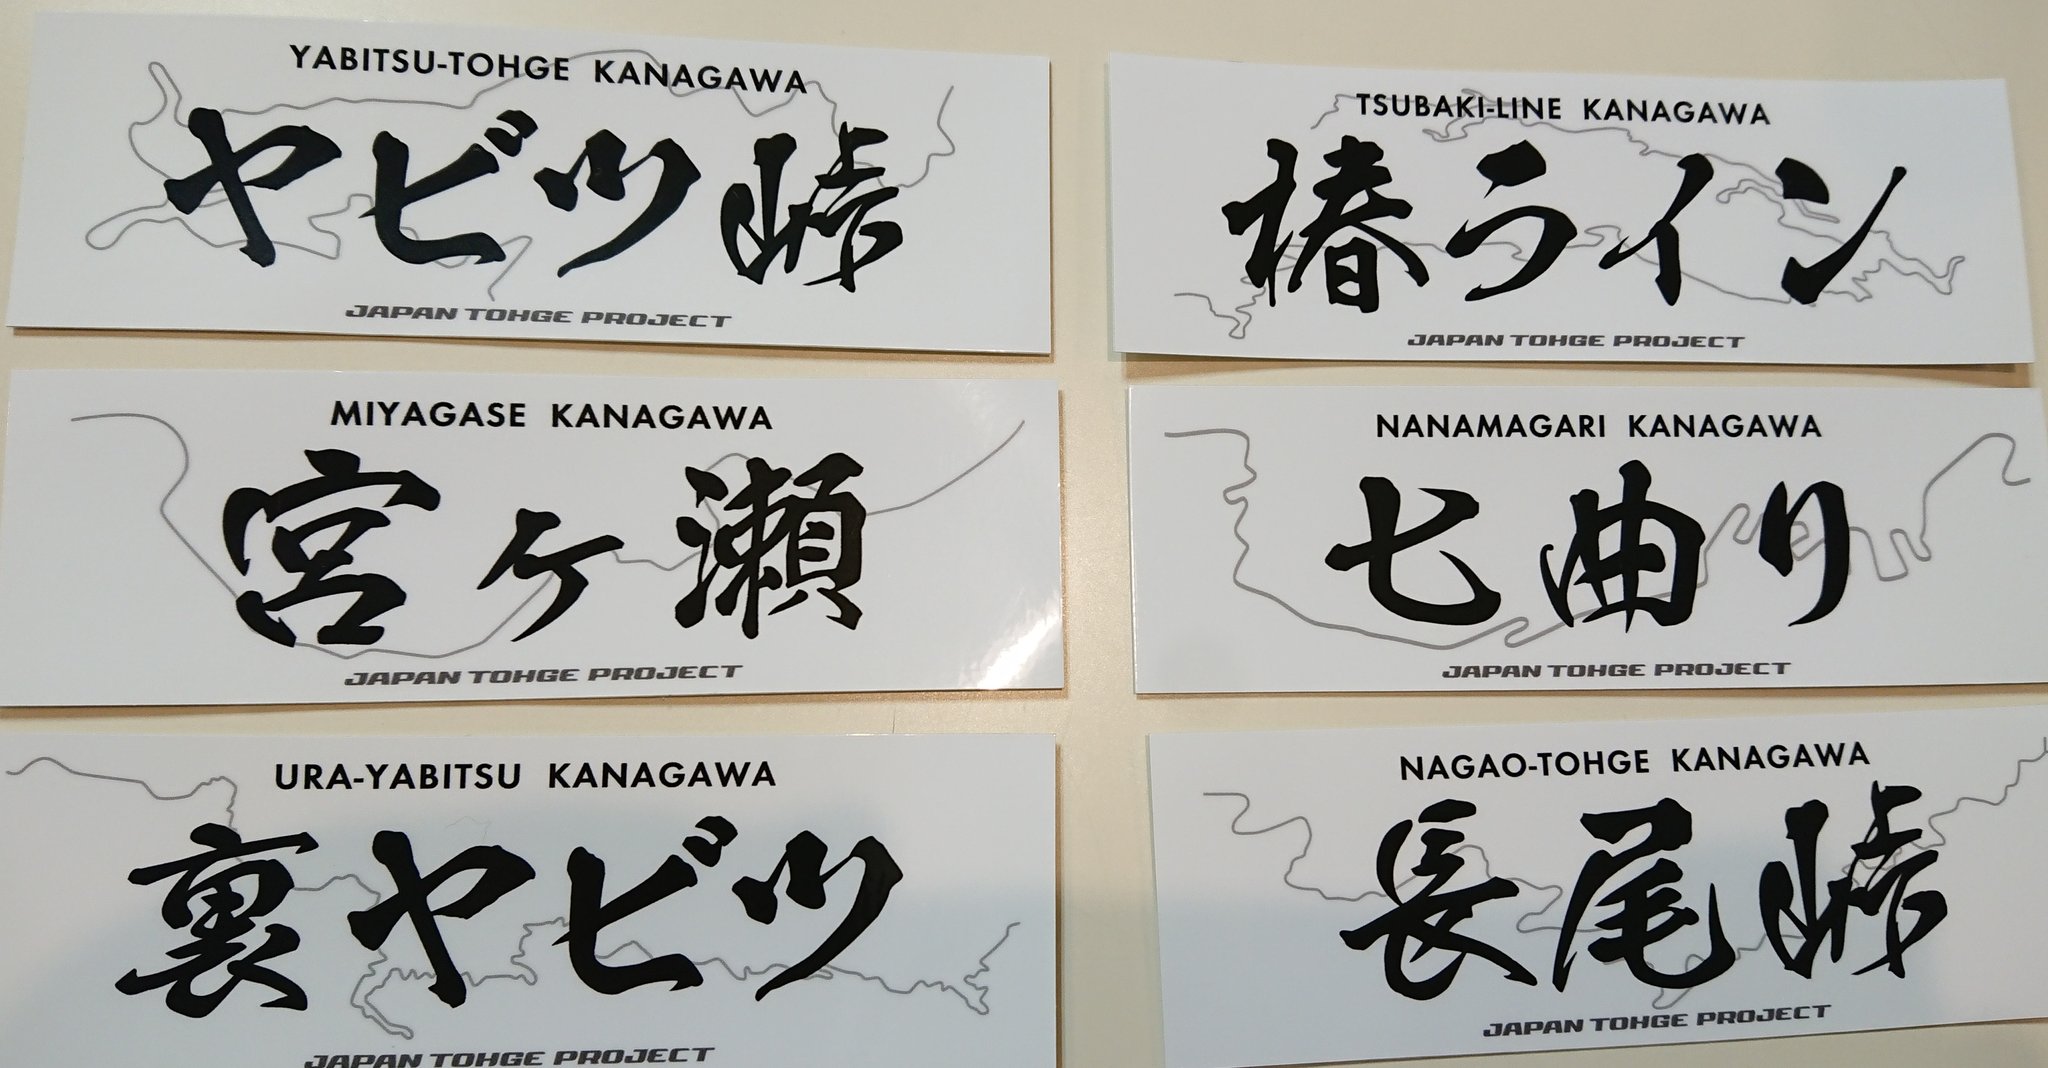 YABITSU-TOHGE KANAGAWA
ヤビツ峠
JAPAN TOHGE PROJECT
TSUBAKI-LINE KANAGAWA
椿ライン
JAPAN TOHGE PROJECT
MIYAGASE KANAGAWA
宮ヶ瀬
JAPAN TOHGE PROJECT
NANAMAGARI KANAGAWA
七曲り
JAPAN TOHGE PROJECT
URA-YABITSU KANAGAWA
裏ヤビツ
JAPAN TOHGE PROJECT
NAGAO-TOHGE KANAGAWA
長尾峠
JAPAN TOHGE PROJECT